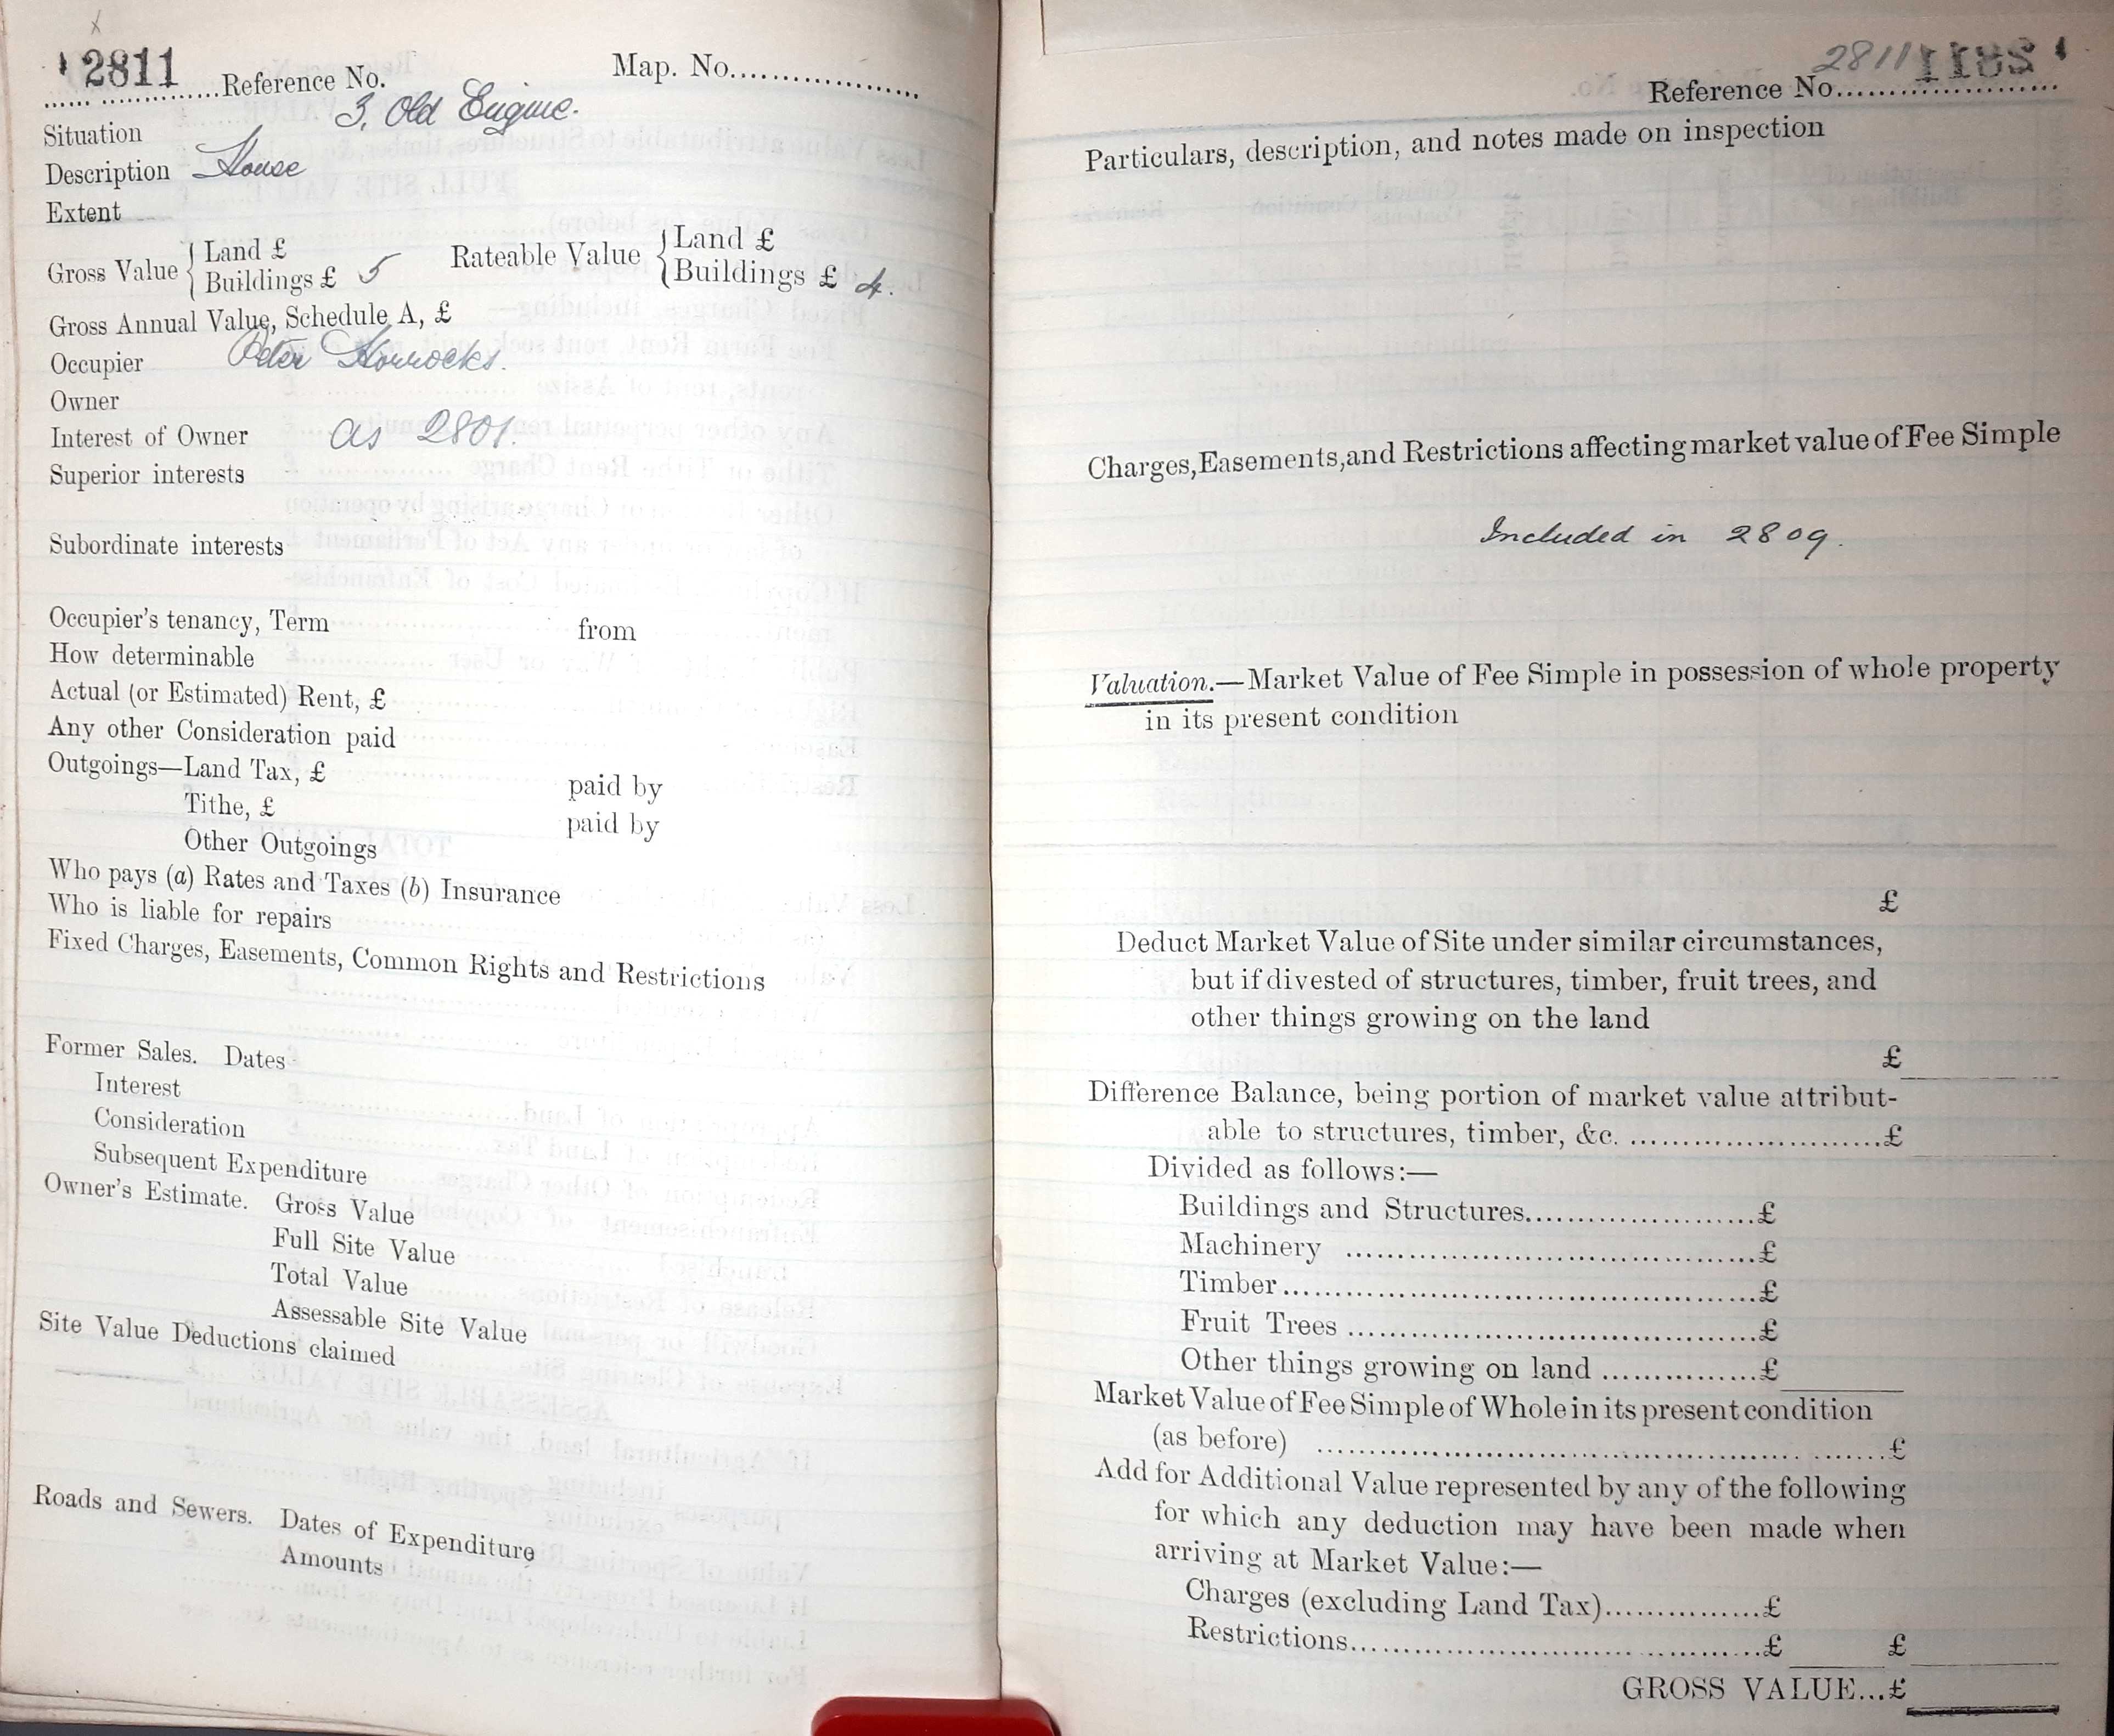 2811 Reference No. Map. No.
Situation 3, Old Engine.
Description House
Extent
Gross Value { Land £ Rateable Value { Land £
Buildings £ 5 Buildings £ 4.
Gross Annual Value, Schedule A, £
Occupier Peter Horrocks.
Owner
Interest of Owner as 2801.
Superior interests
Subordinate interests
Occupier's tenancy, Term from
How determinable
Actual (or Estimated) Rent, £
Any other Consideration paid
Outgoings—Land Tax, £ paid by
Tithe, £ paid by
Other Outgoings
Who pays (a) Rates and Taxes (b) Insurance
Who is liable for repairs
Fixed Charges, Easements, Common Rights and Restrictions
Former Sales. Dates
Interest
Consideration
Subsequent Expenditure
Owner's Estimate. Gross Value
Full Site Value
Total Value
Assessable Site Value
Site Value Deductions claimed
Roads and Sewers. Dates of Expenditure
Amounts
2811
Reference No.
Particulars, description, and notes made on inspection
Charges, Easements, and Restrictions affecting market value of Fee Simple
Included in 2809.
Valuation.—Market Value of Fee Simple in possession of whole property
in its present condition
£
Deduct Market Value of Site under similar circumstances,
but if divested of structures, timber, fruit trees, and
other things growing on the land
£
Difference Balance, being portion of market value attribut-
able to structures, timber, &c. £
Divided as follows:—
Buildings and Structures £
Machinery £
Timber £
Fruit Trees £
Other things growing on land £
Market Value of Fee Simple of Whole in its present condition
(as before) £
Add for Additional Value represented by any of the following
for which any deduction may have been made when
arriving at Market Value:—
Charges (excluding Land Tax) £
Restrictions £ £
GROSS VALUE...£